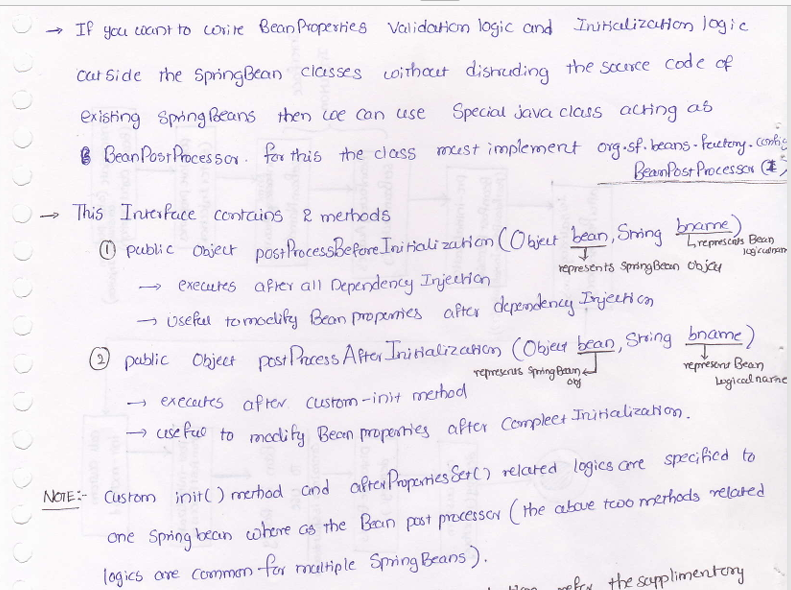 → If you want to write BeanProperties Validation logic and Initialization logic
out side the SpringBean classes without distruding the source code of
existing SpringBeans then we can use Special java class acting as
BeanPostProcessor. for this the class must implement org.sf.beans.factory.config
BeanPostProcessor (I)
→ This Interface contains 2 methods
① public Object postProcessBeforeInitialization (Object bean, String bname)
represents Bean
logicalnam
represents SpringBean objec
→ executes after all Dependency Injection
→ useful to modify Bean properties after dependency Injection
② public Object postProcess After Initialization (Object bean, String bname)
represents SpringBean
obj
represent Bean
Logical name
→ executes after custom-init method
→ useful to modify Bean properties after Compleet Initialization.
NOTE:- Custom init() method and afterPropertiesSet() related logics are specified to
one Spring bean where as the Bean post processor (the above two methods related
logics are common for multiple SpringBeans).
refer the supplimentory